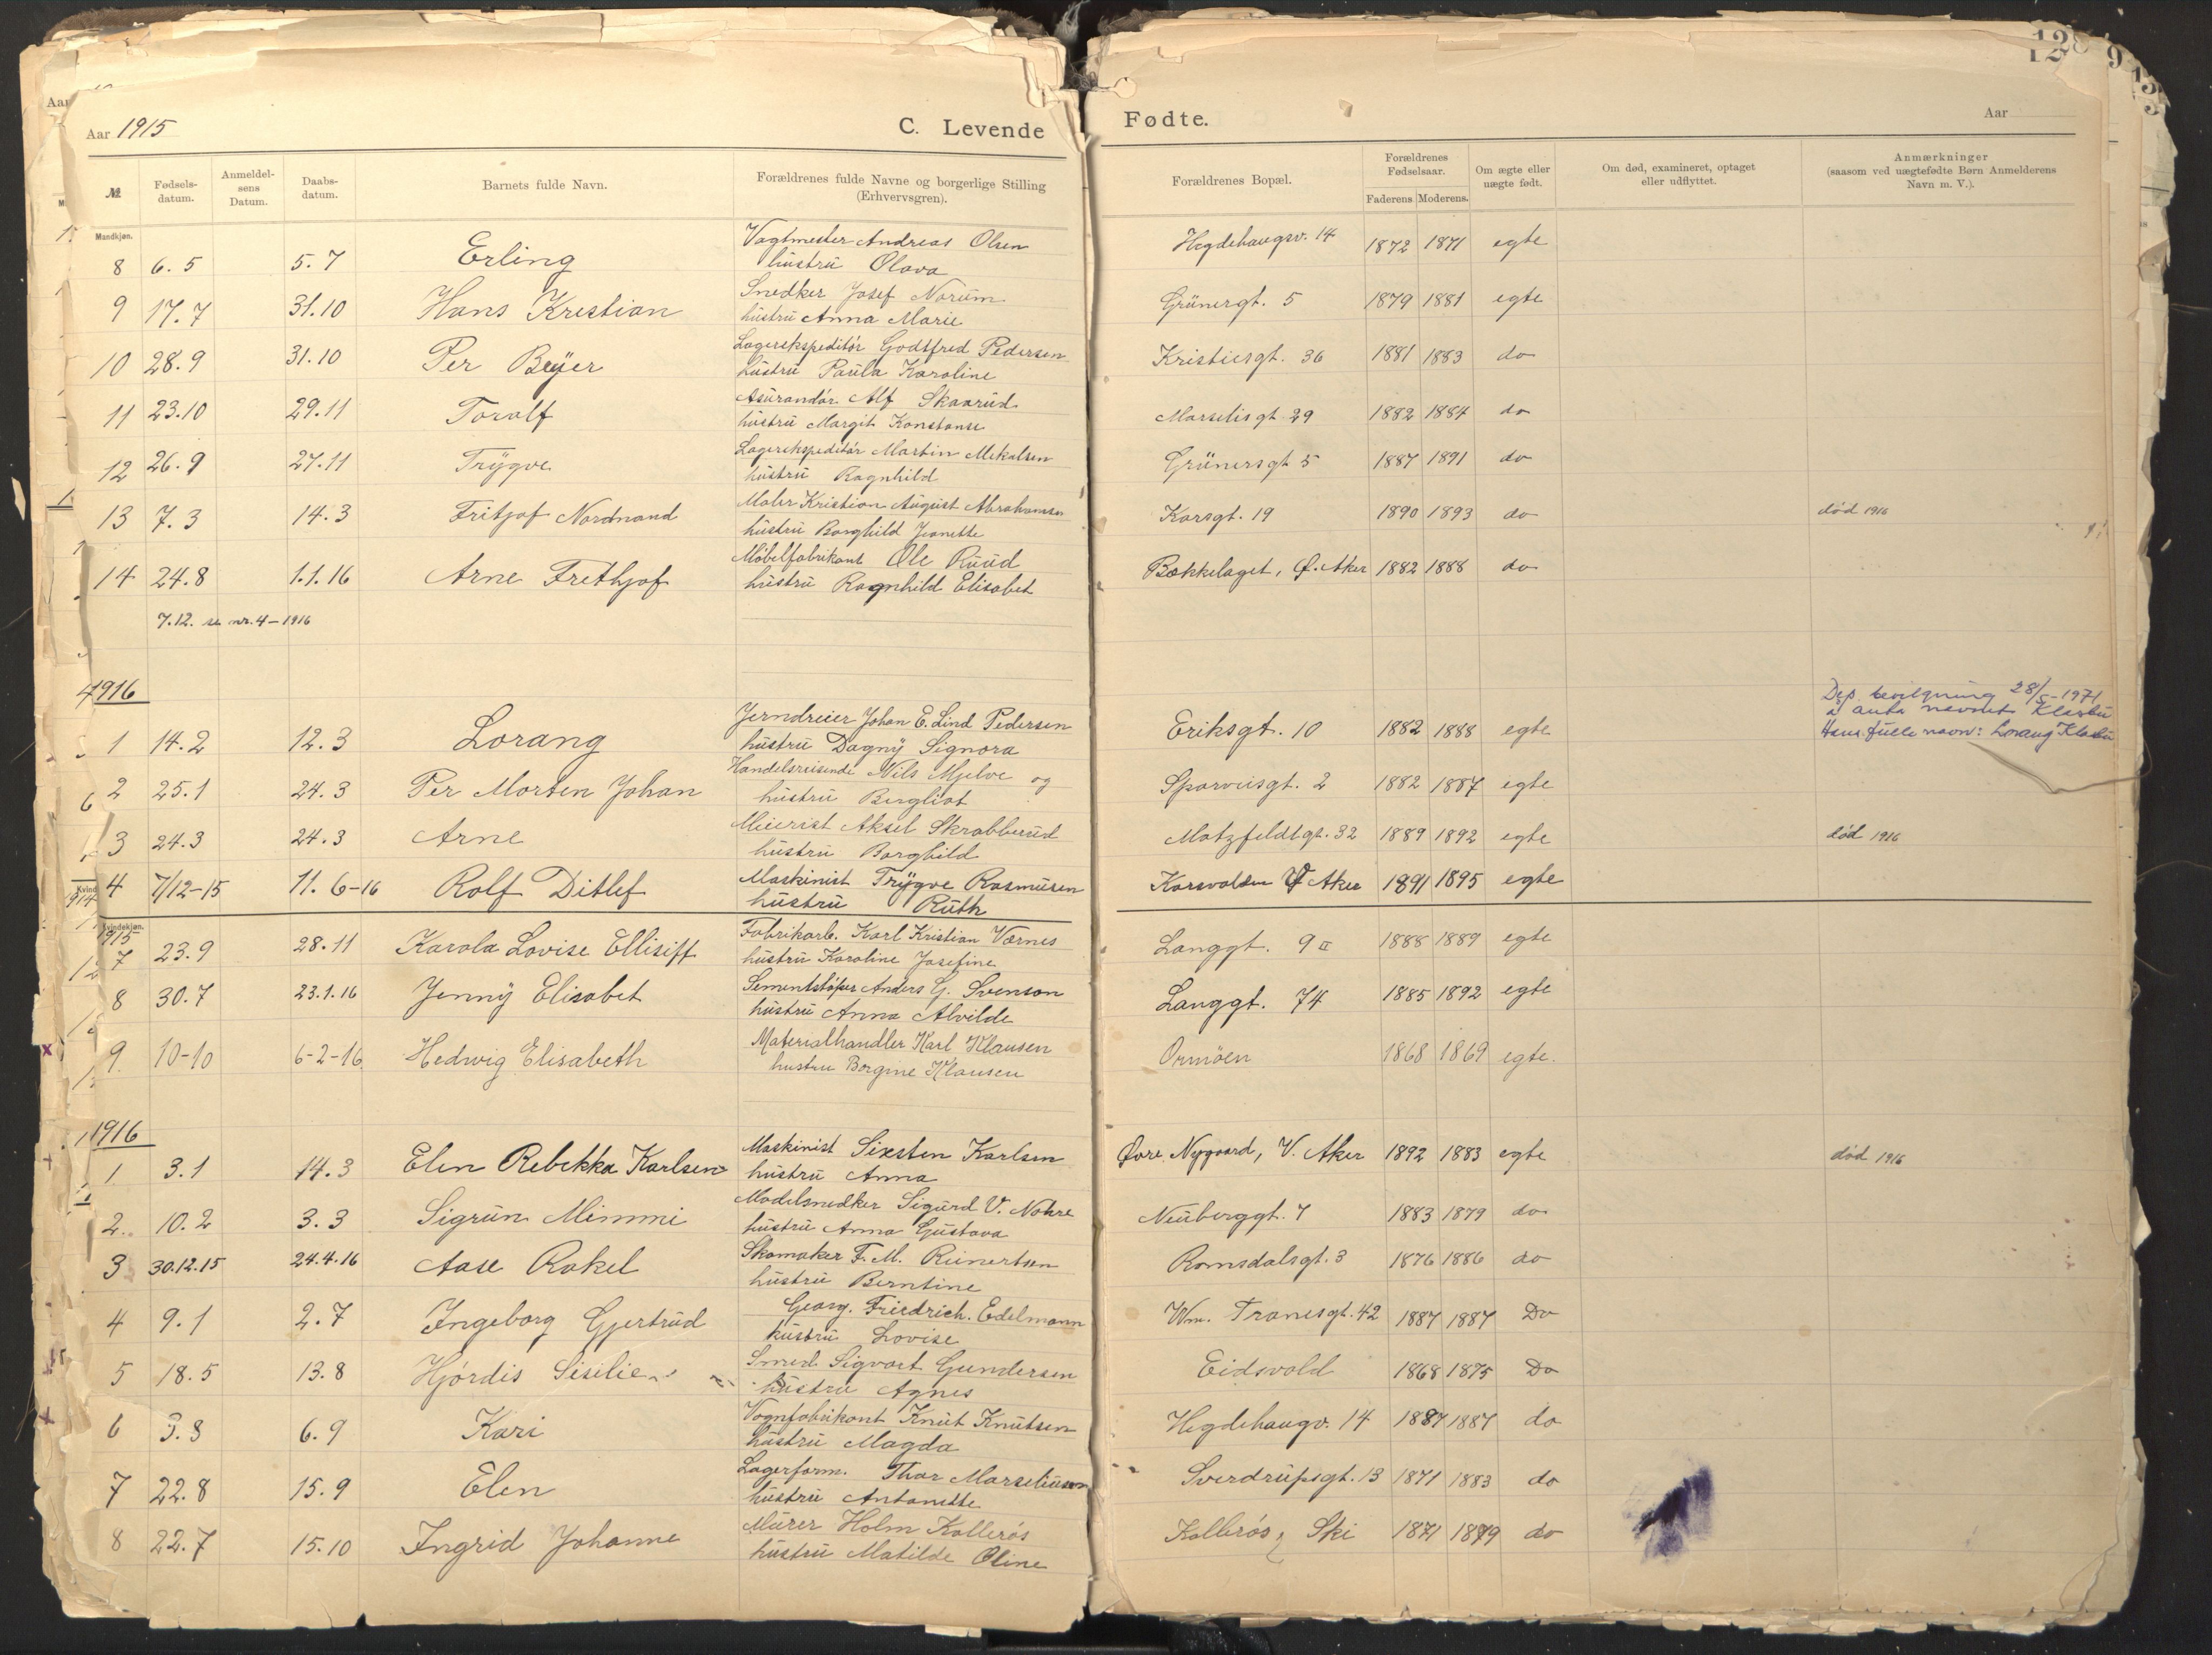 128
9
Aar 1915
C. Levende Fødte.
Aar
№
Fødsels-datum.
Anmeldelsens Datum.
Daabs-datum.
Barnets fulde Navn.
Forældrenes fulde Navne og borgerlige Stilling (Erhvervsgren).
Forældrenes Bopæl.
Forældrenes Fødselsaar.
Faderens.
Moderens.
Om ægte eller uægte født.
Om død, examineret, optaget eller udflyttet.
Anmærkninger (saasom ved uægtefødte Børn Anmelderens Navn m. V.).
Mandkjøn.
8 6.5 5.7 Erling Vagtmester Andreas Olsen Hegdehaugsv. 14 1872 1871 egte
hustru Olava
9 17.7 31.10 Hans Krestian Snedker Josef Norum Grünergt. 5 1879 1881 egte
hustru Anna Marie
10 28.9 31.10 Per Beyer Lagerekspeditør Godtfred Pedersen Kristiesgt. 36 1881 1883 do
hustru Paula Karoline
11 23.10 29.11 Toralf Asurandør Alf Skaarud Marselisgt 29 1882 1884 do
hustru Margit Konstanse
12 26.9 27.11 Trygve Lagerekspeditør Martin Mekalsen Grünersgt 5 1887 1891 do
hustru Ragnhild
13 7.3 14.3 Fritjof Nordnand Maler Kristian August Abrahamsen Korsgt. 19 1890 1893 do død 1916
hustru Borghild Jeanette
14 24.8 1.1.16 Arne Frethjof Møbelfabrikant Ole Ruud Bækkelaget, Ø. Aker 1882 1888 do
hustru Ragnhild Elisabet
7.12. se nr. 4-1916
1916
Dep. bevilgning 28/5-1971
å anta navnet Klæbu
Hans fulle navn: Lorang Klæbu
1 14.2 12.3 Lorang Jerndreier Johan E. Lind Pedersen Eriksgt. 10 1882 1888 egte
hustru Dagny Signora
2 25.1 24.3 Per Morten Johan Handelsreisende Nils Mjelve og Sporveisgt. 2 1882 1887 egte
hustru Bergliot
3 24.3 24.3 Arne Meierist Aksel Skrabberud Motzfeldtgt. 32 1889 1892 egte død 1916
hustru Borghild
4 7/12-15 11.6-16 Rolf Ditlef Maskinist Trygve Rasmusen Korsvolden V Aker 1891 1895 egte
hustru Ruth
Kvindekjøn.
1915
7 23.9 28.11 Karola Lovise Ellisiff Fabrikarb. Karl Kristian Værnes Langgt. 9 II 1888 1889 egte
hustru Karoline Josefine
8 30.7 23.1.16 Jenny Elisabet Sementstøper Anders G. Svenson Langgt. 74 1885 1892 egte
hustru Anna Alvilde
9. 10-10 6-2-16 Hedwig Elisabeth Materialhandler Karl Klausen Ormöen 1868 1869 egte.
hustru Borgine Klausen
1916
1 3.1 14.3 Elen Rebekka Karlsen Maskinist Sixsten Karlsen Øvre Nygaard, V. Aker 1892 1883 egte død 1916
hustru Anna
2. 10.2 3.3 Sigrun Mimmi Modelsnedker Sigurd V. Nohre Neuberggt. 7 1883 1879 do
hustru Anna Gustava
3 30.12.15 24.4.16 Aase Rakel Skomaker F. M. Reinertsen Romsdalsgt. 3 1876 1886 do
hustru Berntine
4 9.1 2.7 Ingeborg Gjertrud Georg. Friedrich. Edelmann Wm. Tranesgt. 42 1887 1887 Do
hustru Lovise
5 18.5 13.8 Hjørdis Sisilie Smed Sigvart Gundersen Eidsvold 1868 1875 Do
hustru Agnes
6 3.8 6.9 Kari Vognfabrikant Knut Knutsen Hegdehaugv. 14 1887 1887 do
hustru Magda
7 22.8 15.9 Elen Lagerform. Thor Marseliusen Sverdrupsgt. 13 1871 1883 do
hustru Antonette
8 22.7 15.10 Ingrid Johanne Murer Holm Kollerøs Kollerøs, Ski 1871 1879 do
hustru Matilde Oline